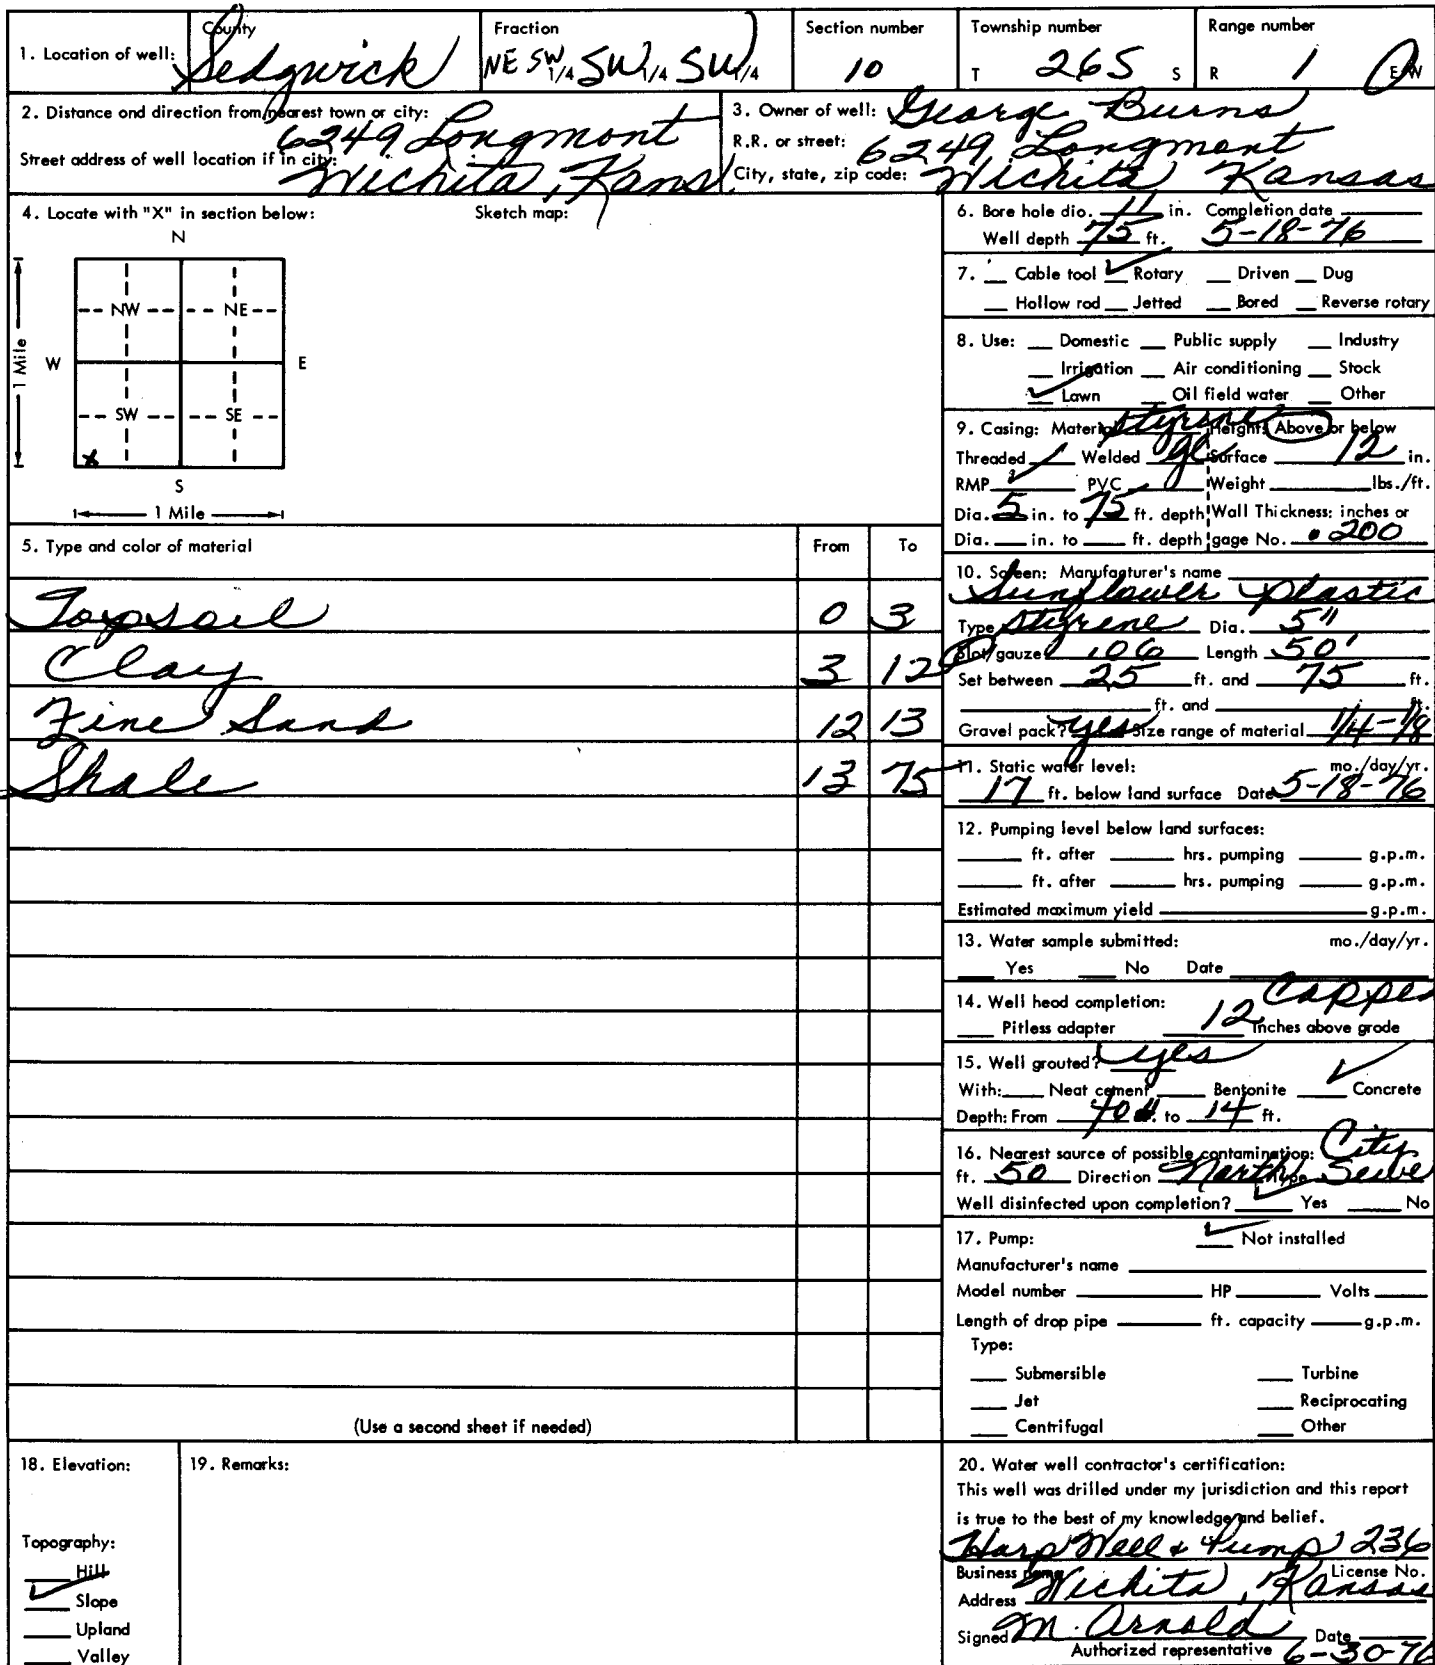 1. Location of well: County Sedgwick Fraction NE SW 1/4 SW 1/4 SW 1/4 Section number 10 Township number T 26S S Range number R 1 E/W
2. Distance and direction from nearest town or city: 6249 Longmont
Street address of well location if in city: Wichita, Kans
3. Owner of well: George Burns
R.R. or street: 6249 Longmont
City, state, zip code: Wichita, Kansas
4. Locate with "X" in section below: Sketch map:
N
NW NE
W E
1 Mile
SW SE
X
S
1 Mile
5. Type and color of material From To
Topsoil 0 3
Clay 3 12
Fine Sand 12 13
Shale 13 75
(Use a second sheet if needed)
6. Bore hole dia. 11 in. Completion date
Well depth 75 ft. 5-18-76
7. Cable tool ✓ Rotary Driven Dug
Hollow rod Jetted Bored Reverse rotary
8. Use: Domestic Public supply Industry
Irrigation Air conditioning Stock
✓ Lawn Oil field water Other
9. Casing: Material Styrene Height: Above or below
Threaded Welded gl Surface 12 in.
RMP ✓ PVC Weight lbs./ft.
Dia. 5 in. to 75 ft. depth Wall Thickness: inches or
Dia. in. to ft. depth gage No. .200
10. Screen: Manufacturer's name
Sunflower Plastic
Type Styrene Dia. 5"
Slot/gauze .106 Length 50'
Set between 25 ft. and 75 ft.
ft. and ft.
Gravel pack? yes Size range of material 1/4-1/8
11. Static water level: mo./day/yr.
17 ft. below land surface Date 5-18-76
12. Pumping level below land surfaces:
ft. after hrs. pumping g.p.m.
ft. after hrs. pumping g.p.m.
Estimated maximum yield g.p.m.
13. Water sample submitted: mo./day/yr.
Yes No Date
14. Well head completion: Capped
Pitless adapter 12 Inches above grade
15. Well grouted? yes
With: Neat cement Bentonite ✓ Concrete
Depth: From to 14 ft.
16. Nearest source of possible contamination: City
ft. 50 Direction North Type Sewe
Well disinfected upon completion? ✓ Yes No
17. Pump: ✓ Not installed
Manufacturer's name
Model number HP Volts
Length of drop pipe ft. capacity g.p.m.
Type:
Submersible Turbine
Jet Reciprocating
Centrifugal Other
18. Elevation:
Topography:
Hill
✓ Slope
Upland
Valley
19. Remarks:
20. Water well contractor's certification:
This well was drilled under my jurisdiction and this report
is true to the best of my knowledge and belief.
Harp Well & Pump 236
Business name License No.
Address Wichita, Kansas
Signed M. Arnold Date
Authorized representative 6-30-76